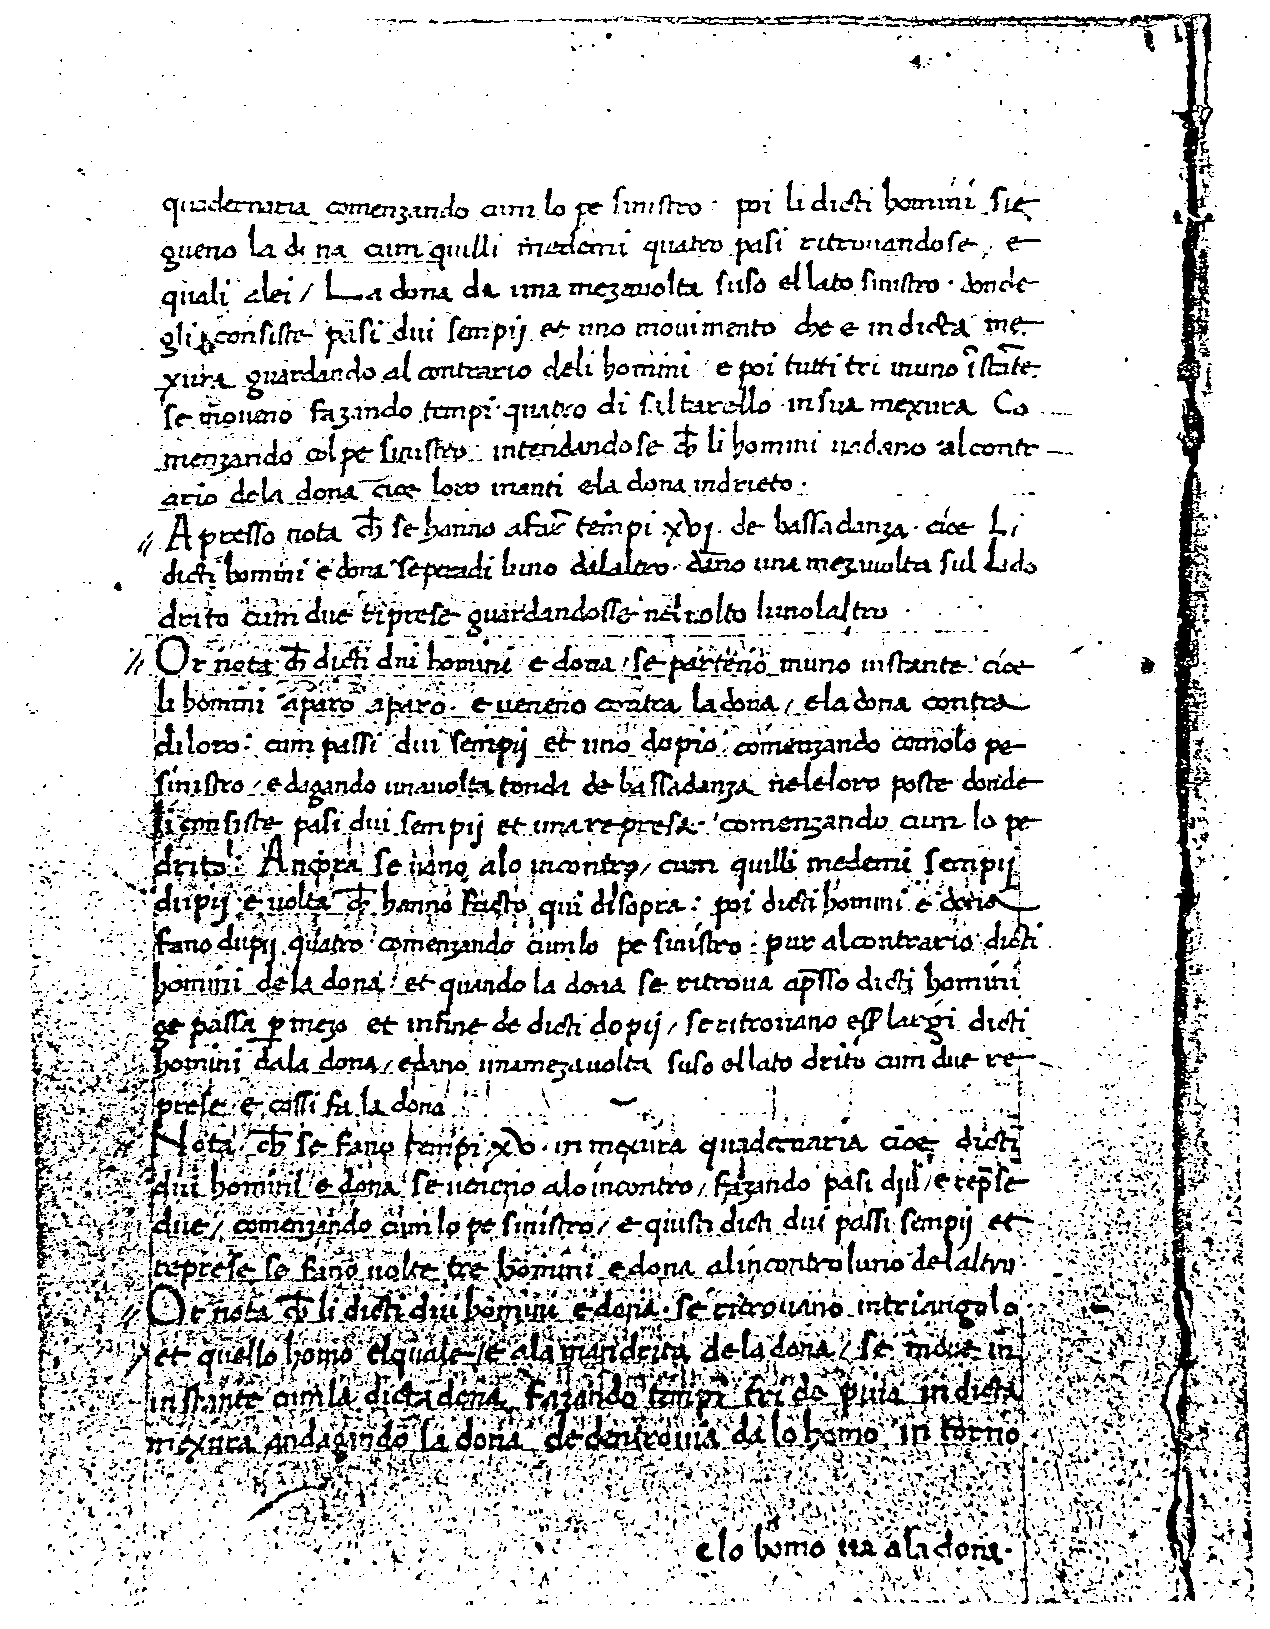 quadernaria comenzando cum lo pe sinistro · poi li dicti homini sie
gueno la dona cum quilli medemi quatro pasi ritrouandose e
quali alei / La dona da una mezauolta suso el lato sinistro · donde
gli consiste pasi dui sempij et uno mouimento che e in dicta me
xura guardando al contrario deli homini e poi tutti tri inuno īstāte
se moueno fazando tempi quatro di saltarello in sua mexura Co
menzando col pe sinistro intendandose ch li homini uadano al contr
ario dela dona cioe loro inanti e la dona indrieto ·
// Apresso nota ch se hanno afar tempi xvj de bassadanza · cioe Li
dicti homini e dona seperadi luno dalaltro · dano una mezauolta sul Lado
drito cum due riprese guardandosse nel uolto luno laltro
// Or nota ch dicti dui homini e dona / se parteno inuno instante cioe
li homini aparo aparo · e ueneno contra la dona / e la dona contra
di loro : cum passi dui sempij et uno dopio comenzando comolo pe
sinistro / e dagando unauolta tonda de bassadanza nele loro poste donde
li consiste pasi dui sempij et una represa · comenzando cum lo pe
drito : Ancora se uano alo incontro / cum quilli medemi sempij
dupij e uolta ch hanno facto qui disopra : poi dicti homini e dona
fano dupij quatro comenzando cum lo pe sinistro : pur al contrario dicti
homini de la dona / et quando la dona se ritroua ap̄sso dicti homini
ge passa p mezo et infine de dicti dopij / se ritrouano largi dicti
homini dala dona / e dano una mezauolta suso el lato drito cum due re
prese e cossi fa la dona
Nota ch se fano tempi xv · in mexura quadernaria cioe dicti
dui homini e dona se ueneno alo incontro / fazando pasi dui / e rep̄se
due / comenzando cum lo pe sinistro / e questi dicti dui passi sempij et
represe se fano uolte tre homini e dona alincontro luno delaltro ·
// Or nota ch li dicti dui homini e dona · se ritrouano in triangolo
et quello homo elquale / e ala man drita de la dona / se moue in
instante cum la dicta dona fazando tempi tri de piua in dicta
mexura andagando la dona de dentrouia da lo homo in torno
e lo homo ua ala dona ·